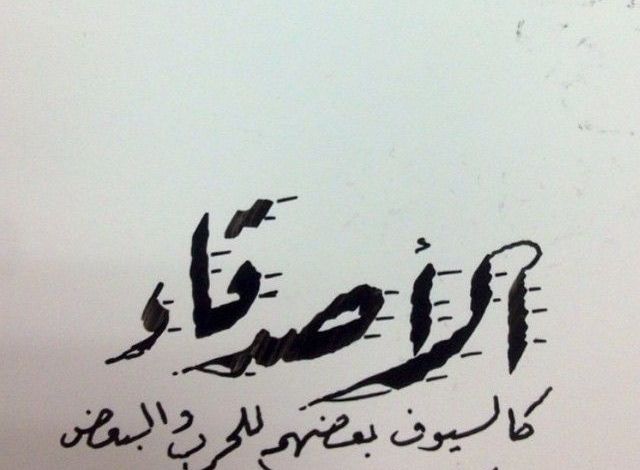 الأصدقاء
كالسيوف بعضهم للحرب والبعض